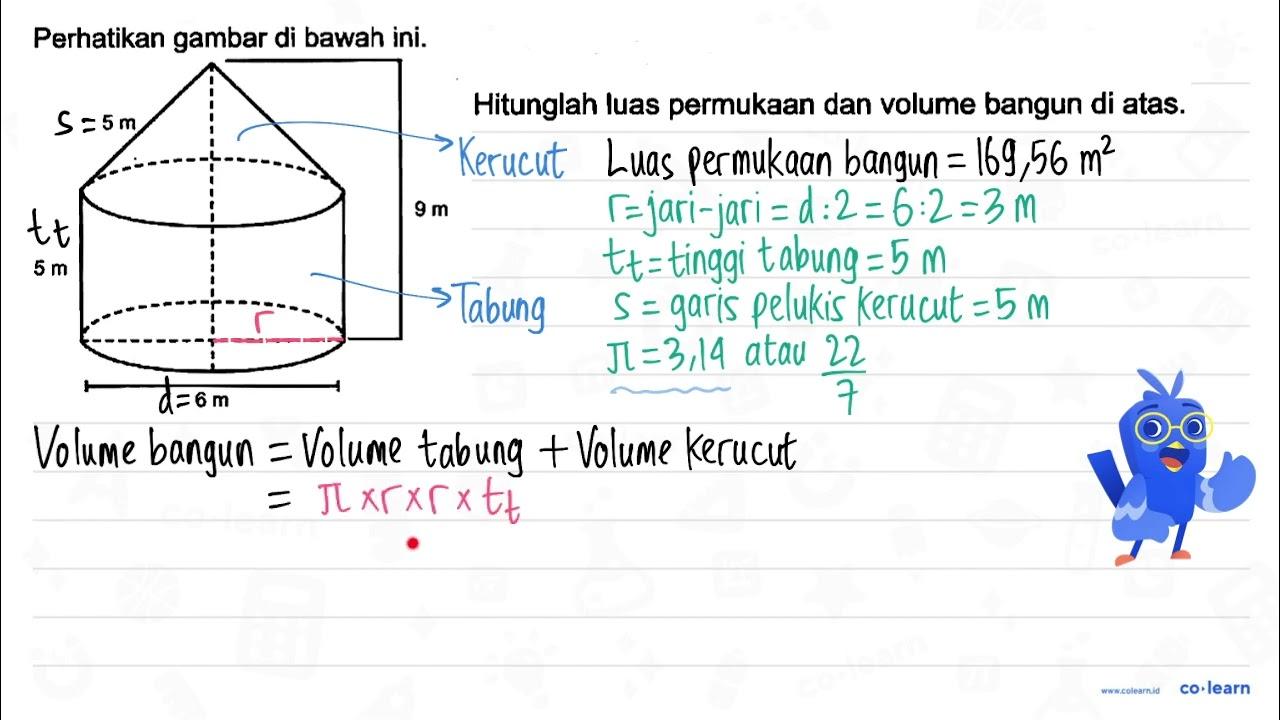 Perhatikan gambar di bawah ini.
s = 5 m
9 m
tt
5 m
r
d = 6 m
Hitunglah luas permukaan dan volume bangun di atas.
Kerucut
Luas permukaan bangun = 169,56 m²
r = jari-jari = d : 2 = 6 : 2 = 3 m
tt = tinggi tabung = 5 m
Tabung
s = garis pelukis kerucut = 5 m
π = 3,14 atau 22/7
Volume bangun = Volume tabung + Volume kerucut
= π × r × r × tt
www.colearn.id co·learn